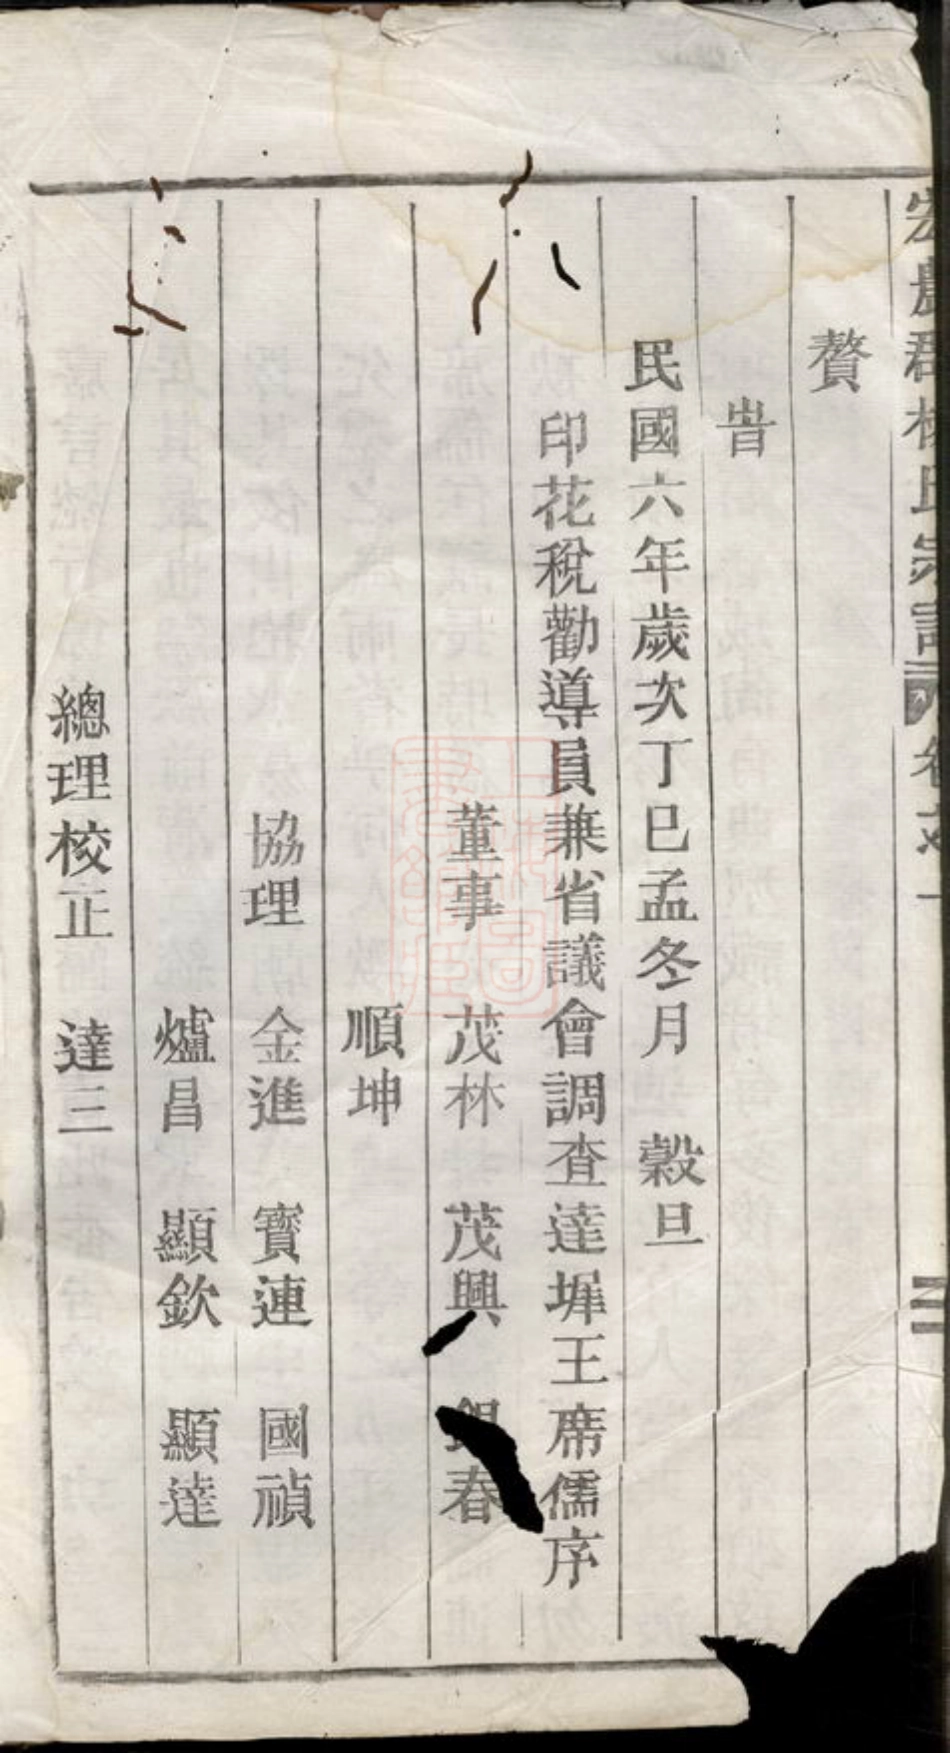 宏農郡楊氏宗譜 卷之一 三
贅
旹
民國六年歲次丁巳孟冬月 穀旦
印花稅勸導員兼省議會調查達墀王席儒序
董事 茂林 茂興 春
順坤
協理 金進 寶連 國禎
爐昌 顯欽 顯達
總理校正 達三